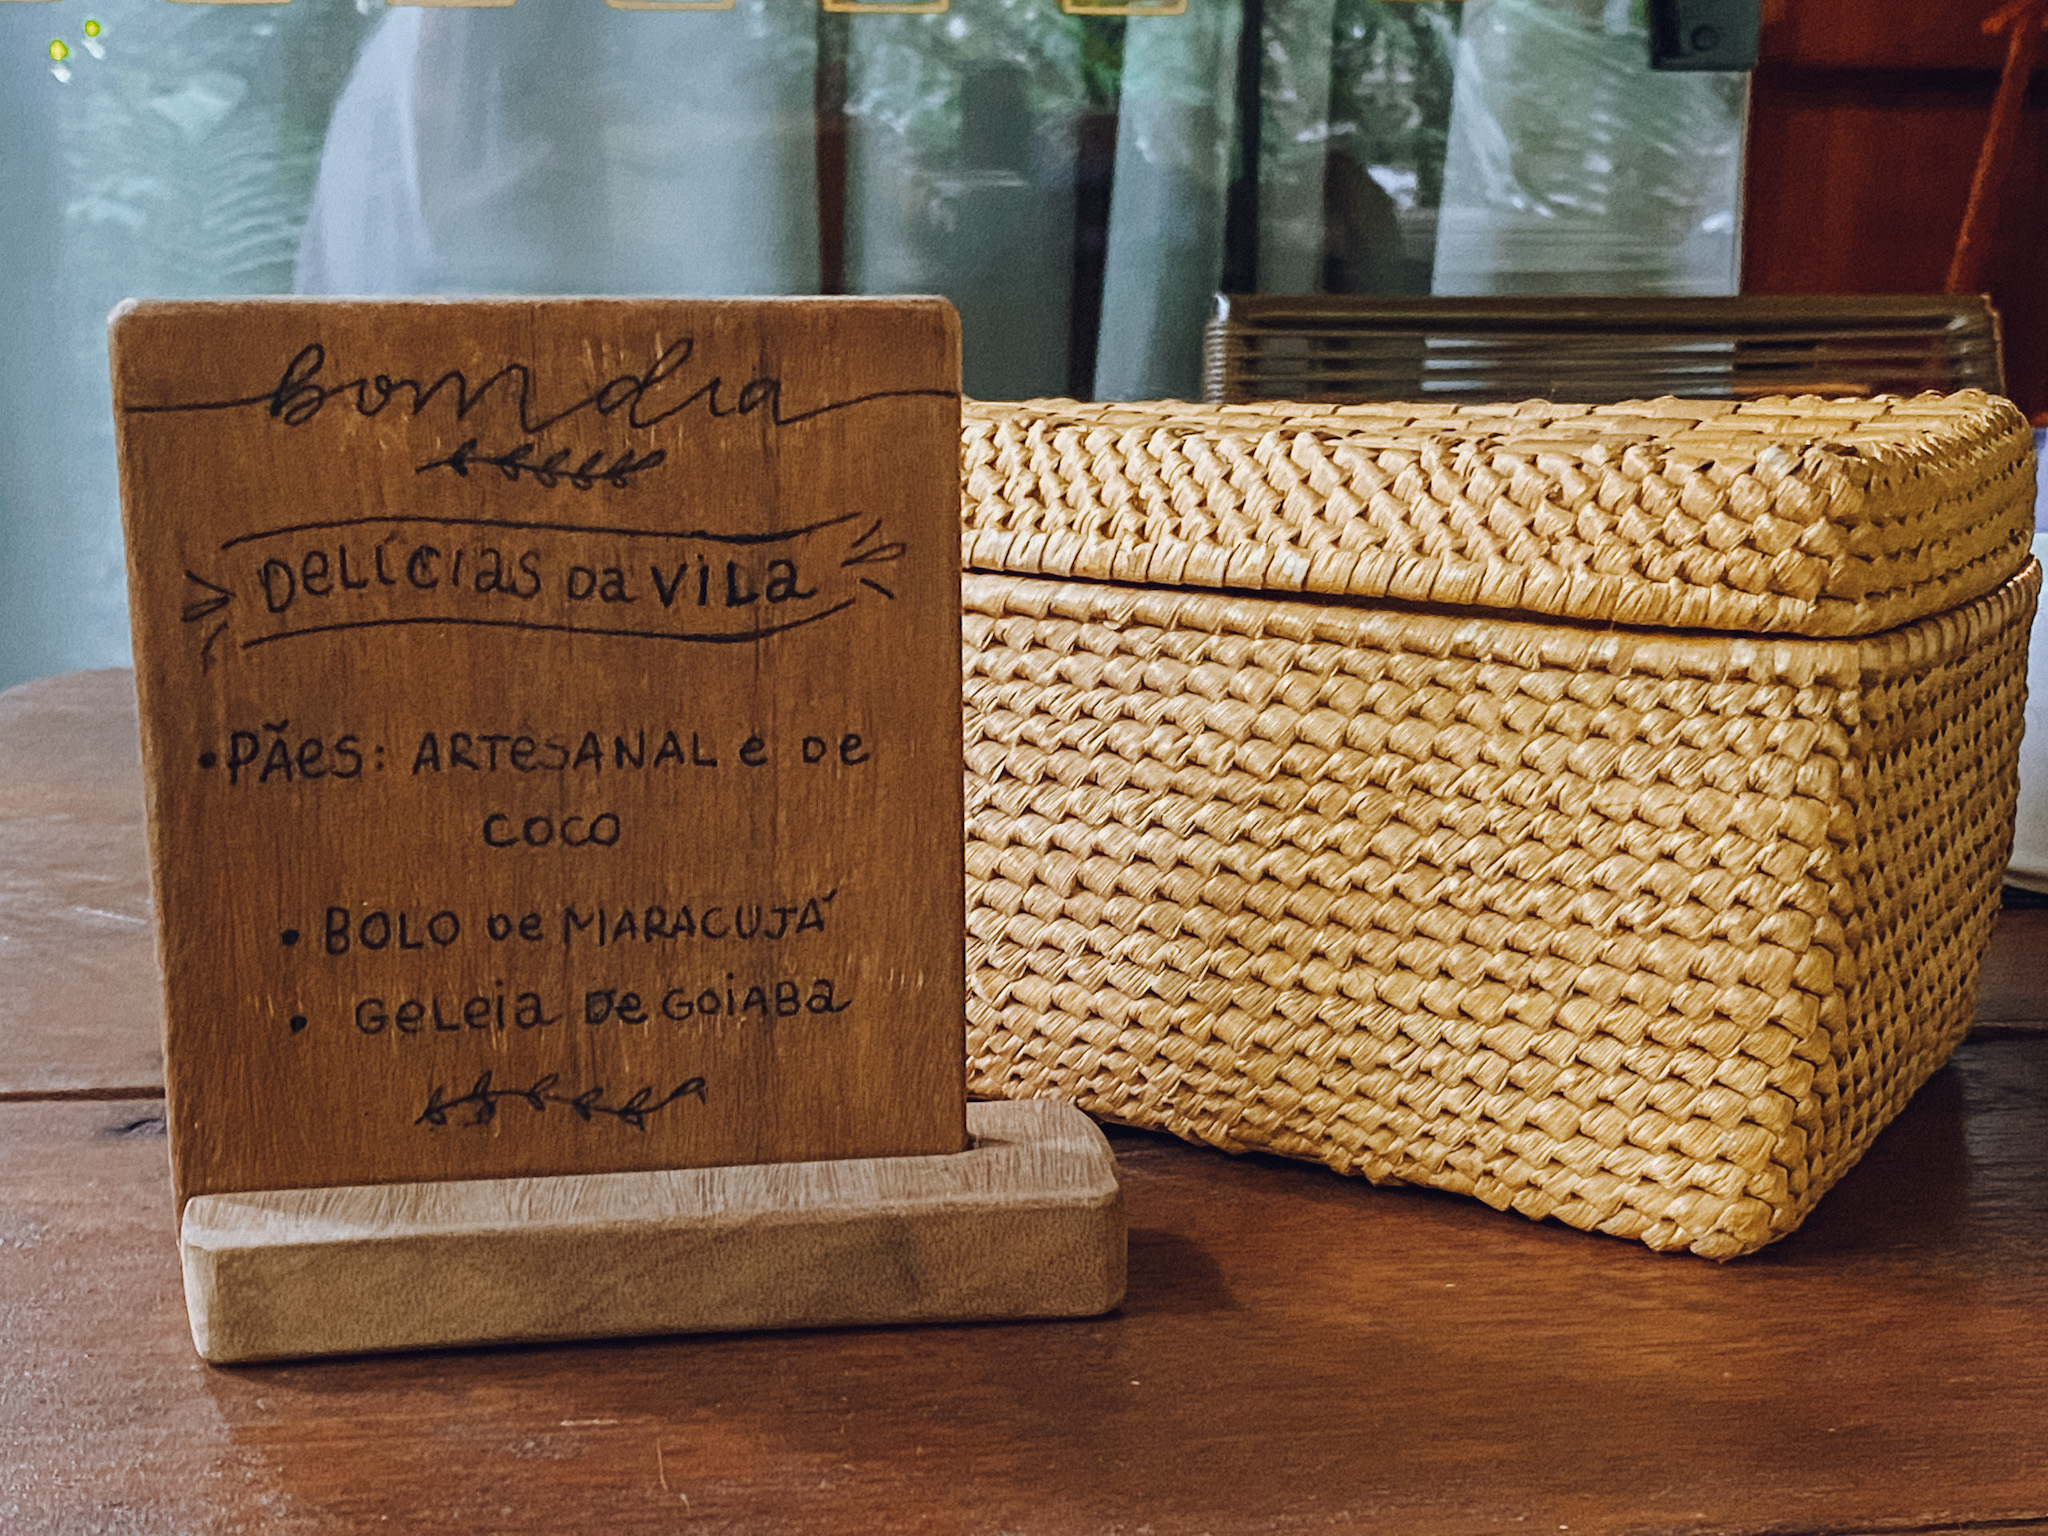 bom dia
DELÍCIAS DA VILA
• PÃES: ARTESANAL E DE
COCO
• BOLO DE MARACUJÁ
• GELEIA DE GOIABA